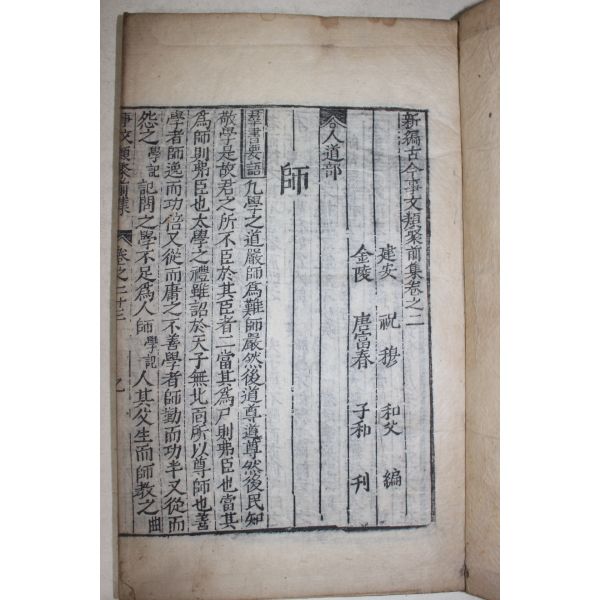 新編古今事文類聚前集卷之二
建安 祝穆 和父 編
金陵 唐富春 子和 刊
人道部
師
羣書要語 凡學之道嚴師爲難師嚴然後道尊道尊然後民知
敬學是故君之所不臣於其臣者二當其爲尸則弗臣也當其
爲師則弗臣也太學之禮雖詔於天子無北面所以尊師也善
學者師逸而功倍又從而庸之不善學者師勤而功半又從而
怨之 學記 記問之學不足爲人師 學記 人其父生而師教之 曲
事文類聚前集 卷之二十三 乙